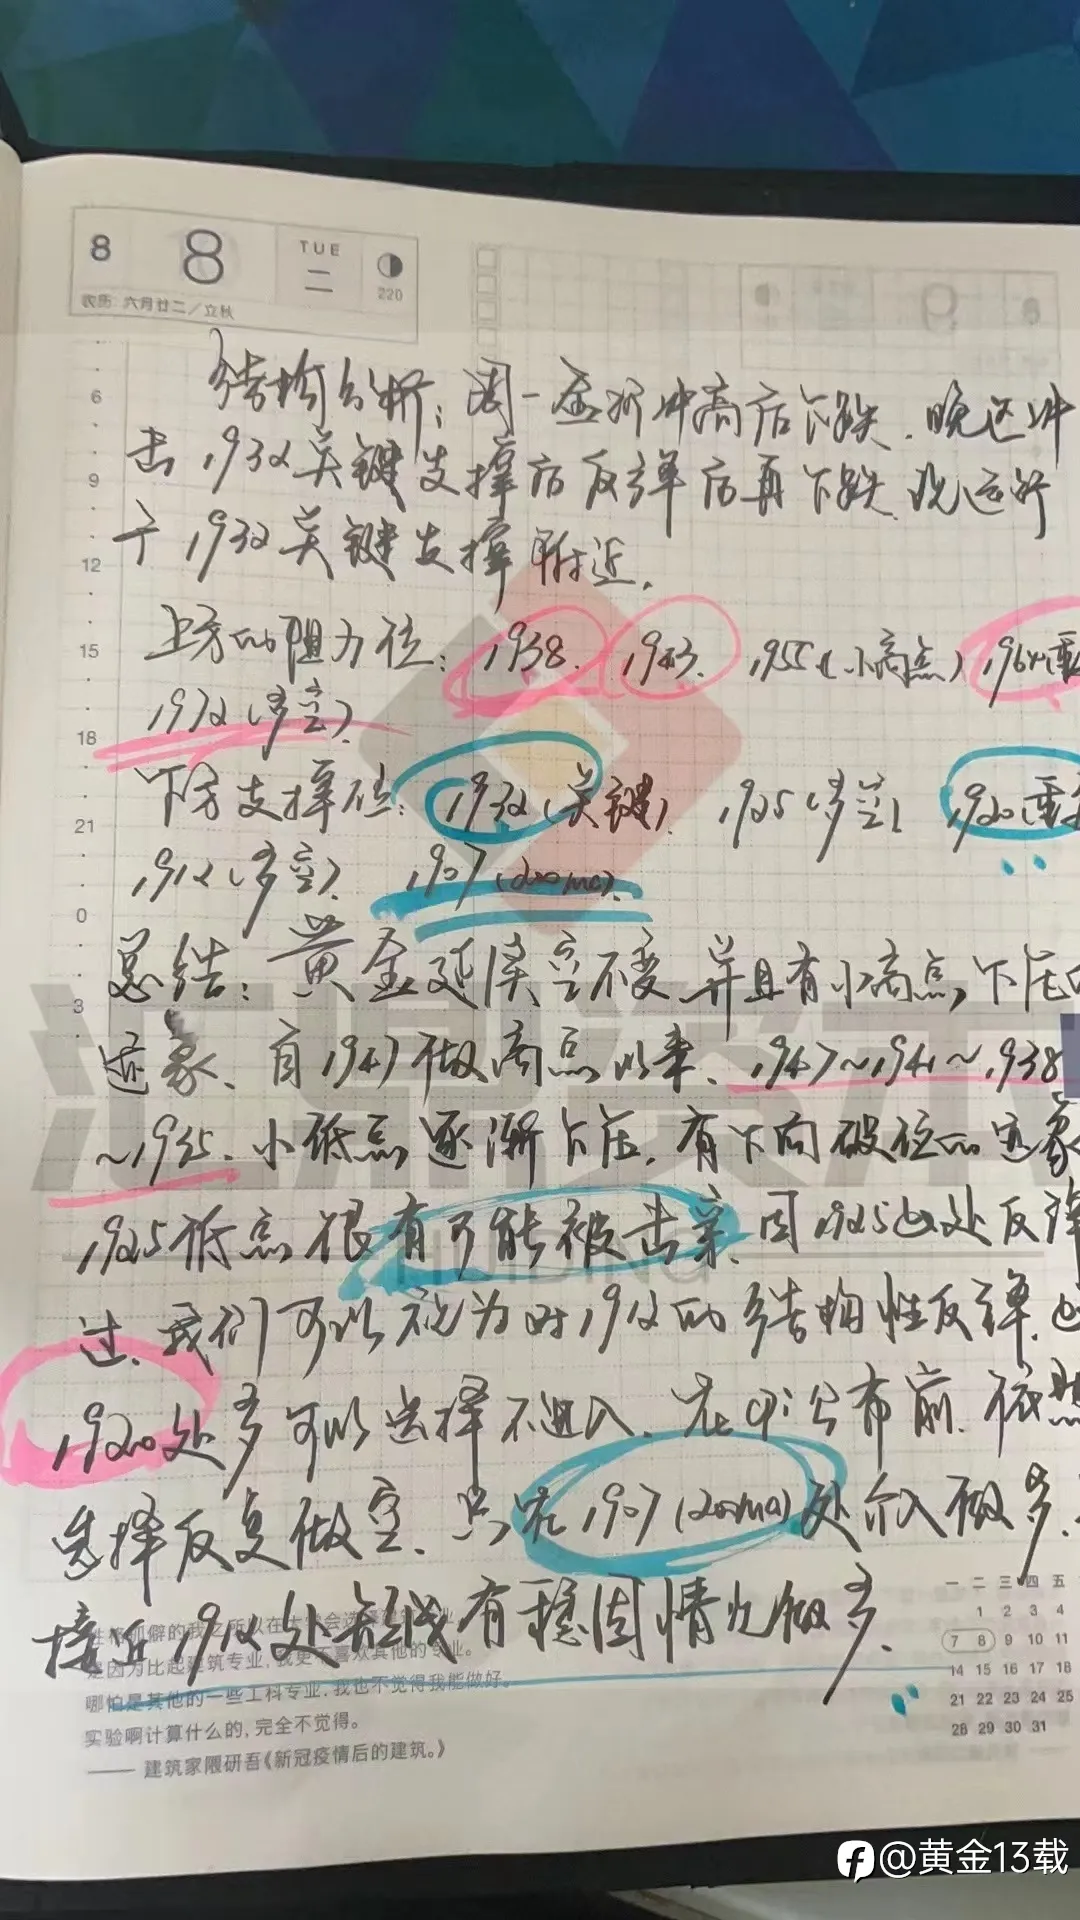 8 8 TUE 二 220
农历 六月廿二／立秋
结构分析：周一金价冲高后下跌.晚还冲
击1932关键支撑后反弹后再下跌.现运行
于1932关键支撑附近.
上方的阻力位：1938. 1943. 1955(小高点) 1964(重
1972(多空).
下方支撑位：1932(关键). 1925(多空) 1920(重
1912(多空). 1907(200ma).
总结：黄金延续空不变并且有小高点下压的
迹象.自1947做高点以来.1947~1941~1938
~1935.小低点逐渐下压.有下向破位的迹象
1925低点很有可能被击穿.因1925处反弹
过.我们可以视为对1912的结构性反弹.
1920处多可以选择不进入.在cpi公布前.依然
选择反复做空.只在1907(200ma)处介入做多.
接近1912处短线有稳固情况做多.
6
9
12
15
18
21
0
3
汇鼎资本
HUIDING
是因为比起建筑专业，我更不喜欢其他的专业。
哪怕是其他的一些工科专业，我也不觉得我能做好。
实验啊计算什么的，完全不觉得。
—— 建筑家隈研吾《新冠疫情后的建筑。》
一 二 三 四 五
1 2 3 4
7 8 9 10 11
14 15 16 17 18
21 22 23 24 25
28 29 30 31
@黄金13载